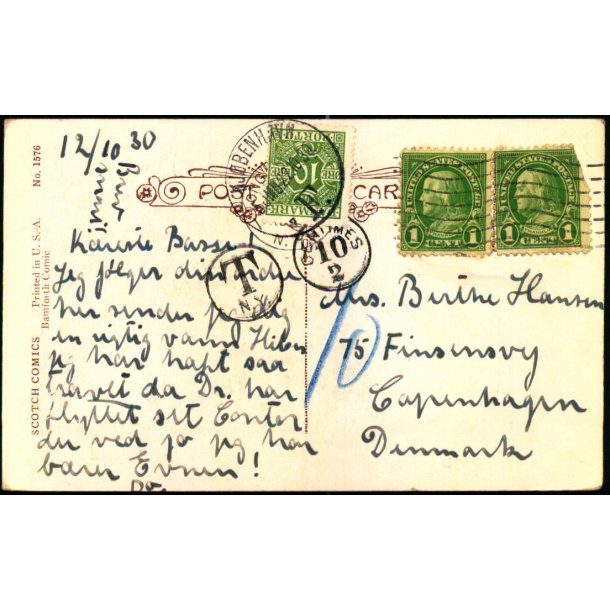 SCOTCH COMICS Printed in U.S.A. No. 1576
Bamforth Comic
12/10 30
KØBENHAVN
PORTO
10
ØRE
DANMARK
PO CAR
UNITED STATES POSTAGE
1 CENT 1
UNITED STATES POSTAGE
1 CENT 1
T
N.Y.
CENTIMES
10
2
10
Kæreste Basse!
Jeg følger din
her sender jeg dig
en rigtig varm Hilsen
jeg har haft saa
travlt da Dr. har
flyttet sit Contor
du ved jo jeg har
bare Evnen!
Mrs. Berthe Hansen
75 Finsensvej
Copenhagen
Denmark